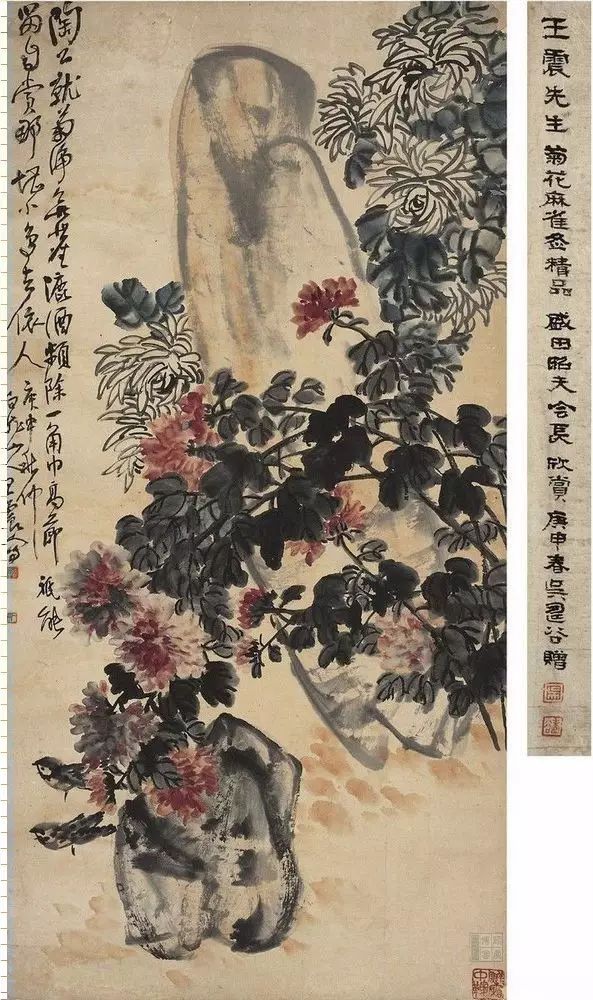 王震先生 菊花麻雀精品 盛田昭夫会長 欣賞 庚申春吳谷贈
陶公就菊净無塵漉酒頻除一角巾高節祇能
留自賞那堪小鳥去依人 庚申秋仲
白龍山人王震寫